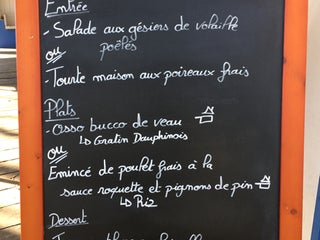 Entrée
- Salade aux gésiers de volaille
poêlés
ou
- Tourte maison aux poireaux frais
Plats
- Osso bucco de veau
↳ Gratin Dauphinois
ou
Emincé de poulet frais à la
sauce roquette et pignons de pin
↳ Riz
Dessert